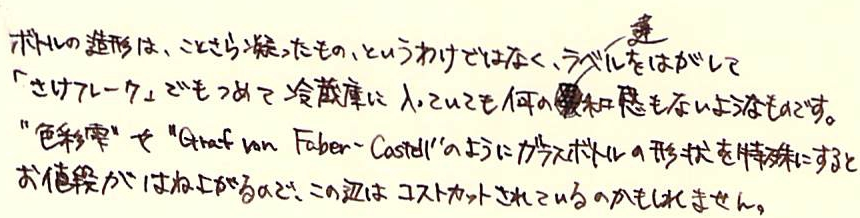 ボトルの造形は、ことさら凝ったもの、というわけではなく、ラベルをはがして
「さけフレーク」でもつめて冷蔵庫に入っていても何の違和感もないようなものです。
"色彩雫"や"Graf von Faber-Castell"のようにガラスボトルの形状を特殊にすると
お値段がはね上がるので、この辺はコストカットされているのかもしれません。